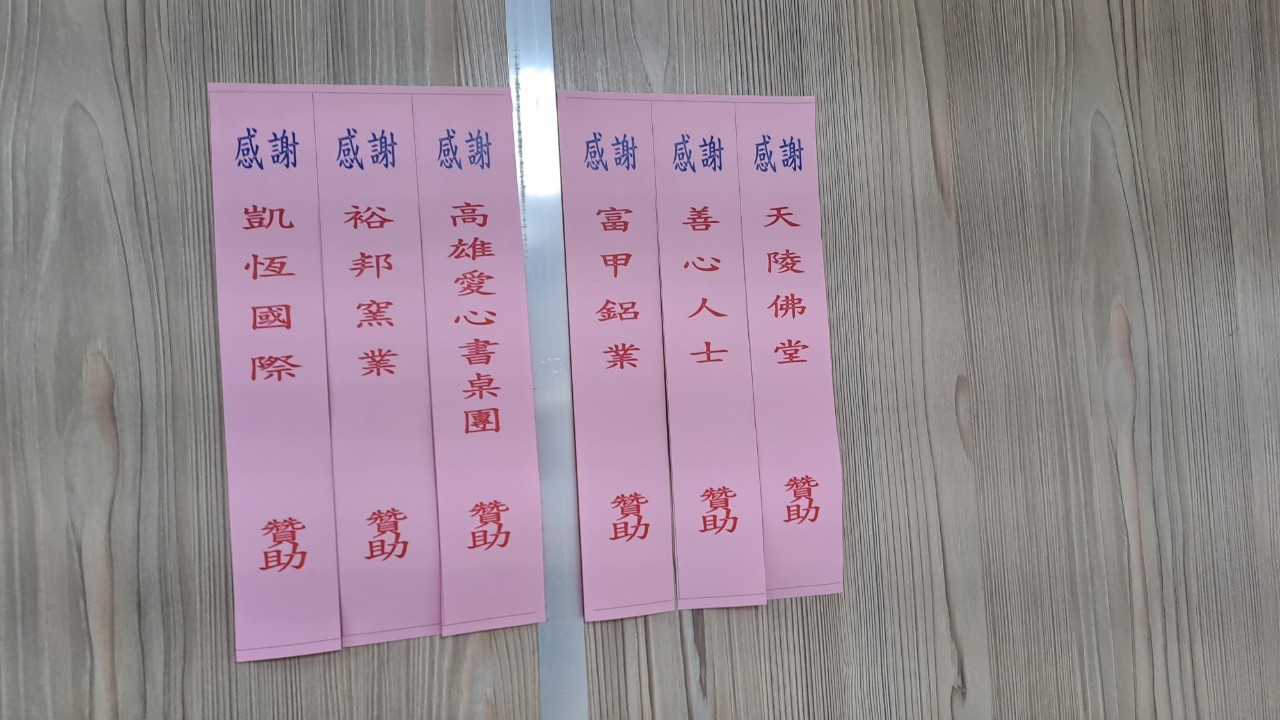 感謝 天陵佛堂 贊助
感謝 善心人士 贊助
感謝 富甲鋁業 贊助
感謝 高雄愛心書桌團 贊助
感謝 裕邦窯業 贊助
感謝 凱恆國際 贊助